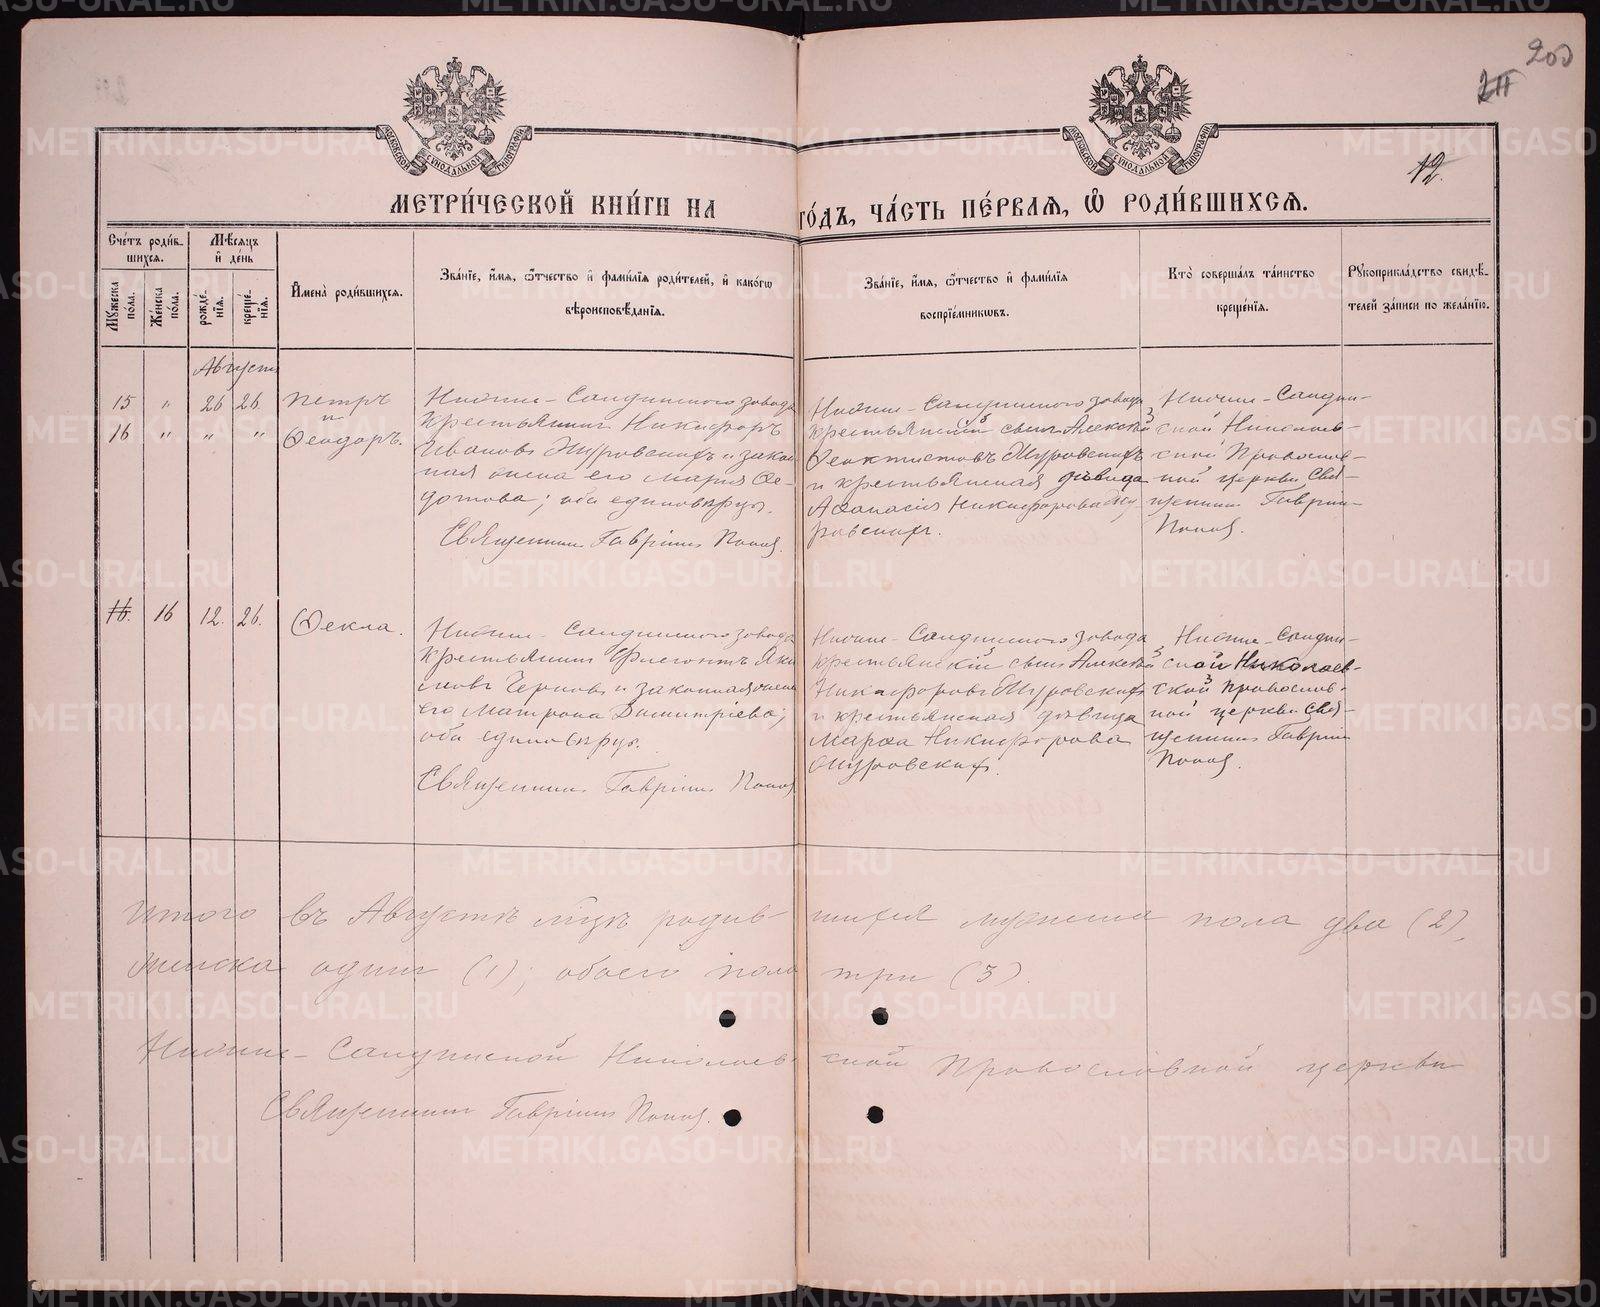 203
211
12.
МОСКОВСКОЙ СѴНОДАЛЬНОЙ ТИПОГРАФІИ
МОСКОВСКОЙ СѴНОДАЛЬНОЙ ТИПОГРАФІИ
МЕТРИ́ЧЕСКОЙ КНИ́ГИ НА ГО́ДЪ, ЧА́СТЬ ПЕ́РВАЯ, Ѽ РОДИ́ВШИХСЯ.
Сче́тъ роди́в-
шихся.
Мꙋжеска
пола.
Же́нска
по́ла.
Мѣ́сяцъ
и҆ де́нь
рожде́-
нїя.
креще́-
нїя.
И҆мена̀ роди́вшихся.
Зва́нїе, и҆́мя, ѻ҆́тчество и҆ фами́лїя роди́телей, и҆ како́гѡ
вѣроисповѣ́данїя.
Зва́нїе, и҆́мя, ѻ҆́тчество и҆ фами́лїя
воспрїе́мникѡвъ.
Кто̀ соверша́лъ та́инство
креще́нїя.
Рꙋкоприкла́дство свидѣ́-
телей за́писи по жела́нїю.
Августъ
15 " 26 26.
16 " " "
Петръ
и
Ѳеодоръ.
Нижне-Салдинскаго завода
крестьянинъ Никифоръ
Ивановъ Журовскихъ и закон-
ная жена его Марія Ѳе-
дотова; оба единовѣрцы.
Священникъ Гавріилъ Поповъ.
Нижне-Салдинскаго завода
крестьянскій сынъ Алексѣй
Ѳеоктистовъ Журовскихъ
и крестьянская дѣвица
Аѳанасія Никифорова Жу-
ровскихъ.
Нижне-Салдин-
ской Николаев-
ской Православ-
ной церкви Свя-
щенникъ Гавріилъ
Поповъ.
16. 16 12. 26.
Ѳекла.
Нижне-Салдинскаго завода
крестьянинъ Флегонтъ Яки-
мовъ Черновъ и законная жена
его Матрона Димитріева;
оба единовѣрцы.
Священникъ Гавріилъ Поповъ
Нижне-Салдинскаго завода
крестьянскій сынъ Алексѣй
Никифоровъ Журовскихъ
и крестьянская дѣвица
Марѳа Никифорова
Журовскихъ.
Нижне-Салдин-
ской Николаев-
ской Православ-
ной церкви Свя-
щенникъ Гавріилъ
Поповъ.
Итого въ Августѣ мѣсяцѣ родив- шихся мужеска пола два (2),
женска одинъ (1); обоего пола три (3).
Нижне-Салдинской Николаев- ской Православной церкви
Священникъ Гавріилъ Поповъ.
METRIKI.GASO-URAL.RU